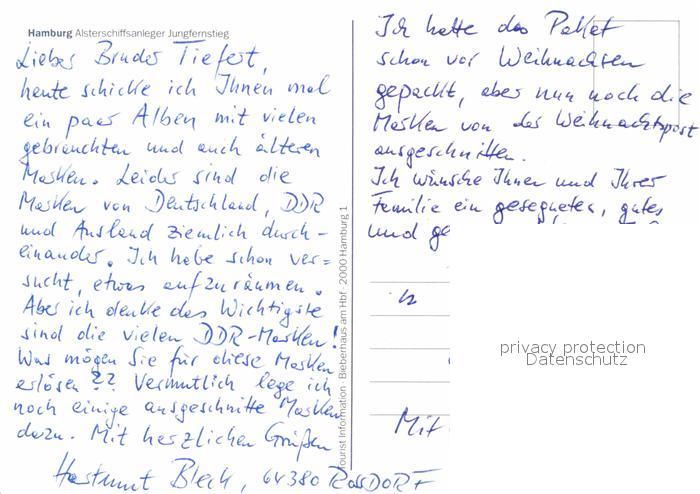 Hamburg Alsterschiffsanleger Jungfernstieg
Lieber Bruder Tiefert,
heute schicke ich Ihnen mal
ein paar Alben mit vielen
gebrauchten und auch älteren
Marken. Leider sind die
Marken von Deutschland, DDR
und Ausland ziemlich durch-
einander. Ich habe schon ver=
sucht, etwas aufzuräumen.
Aber ich denke das Wichtigste
sind die vielen DDR-Marken!
Was mögen Sie für diese Marken
erlösen ?? Vermutlich lege ich
noch einige ausgeschnitte Marken
dazu. Mit herzlichen Grüßen
Hartmut Blech, 64380 RoSSDORF
Tourist Information · Bieberhaus am Hbf · 2000 Hamburg 1
Ich hatte das Paket
schon vor Weihnachten
gepackt, aber nun noch die
Marken von der Weihnachtspost
ausgeschnitten.
Ich wünsche Ihnen und Ihrer
Familie ein gesegnetes, gutes
und ge
Mit
privacy protection
Datenschutz